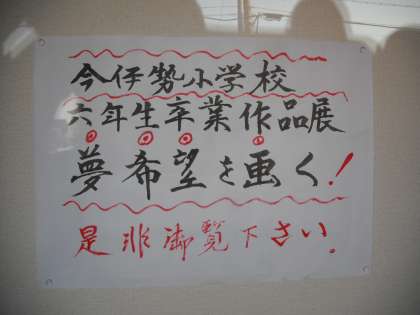 今伊勢小学校
六年生卒業作品展
夢希望を画く!
是非御覧下さい。